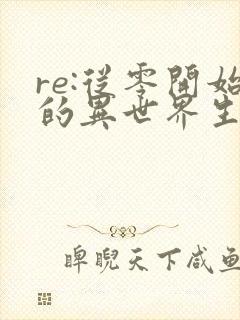 re:從零開始
的異世界生
睥睨天下咸鱼